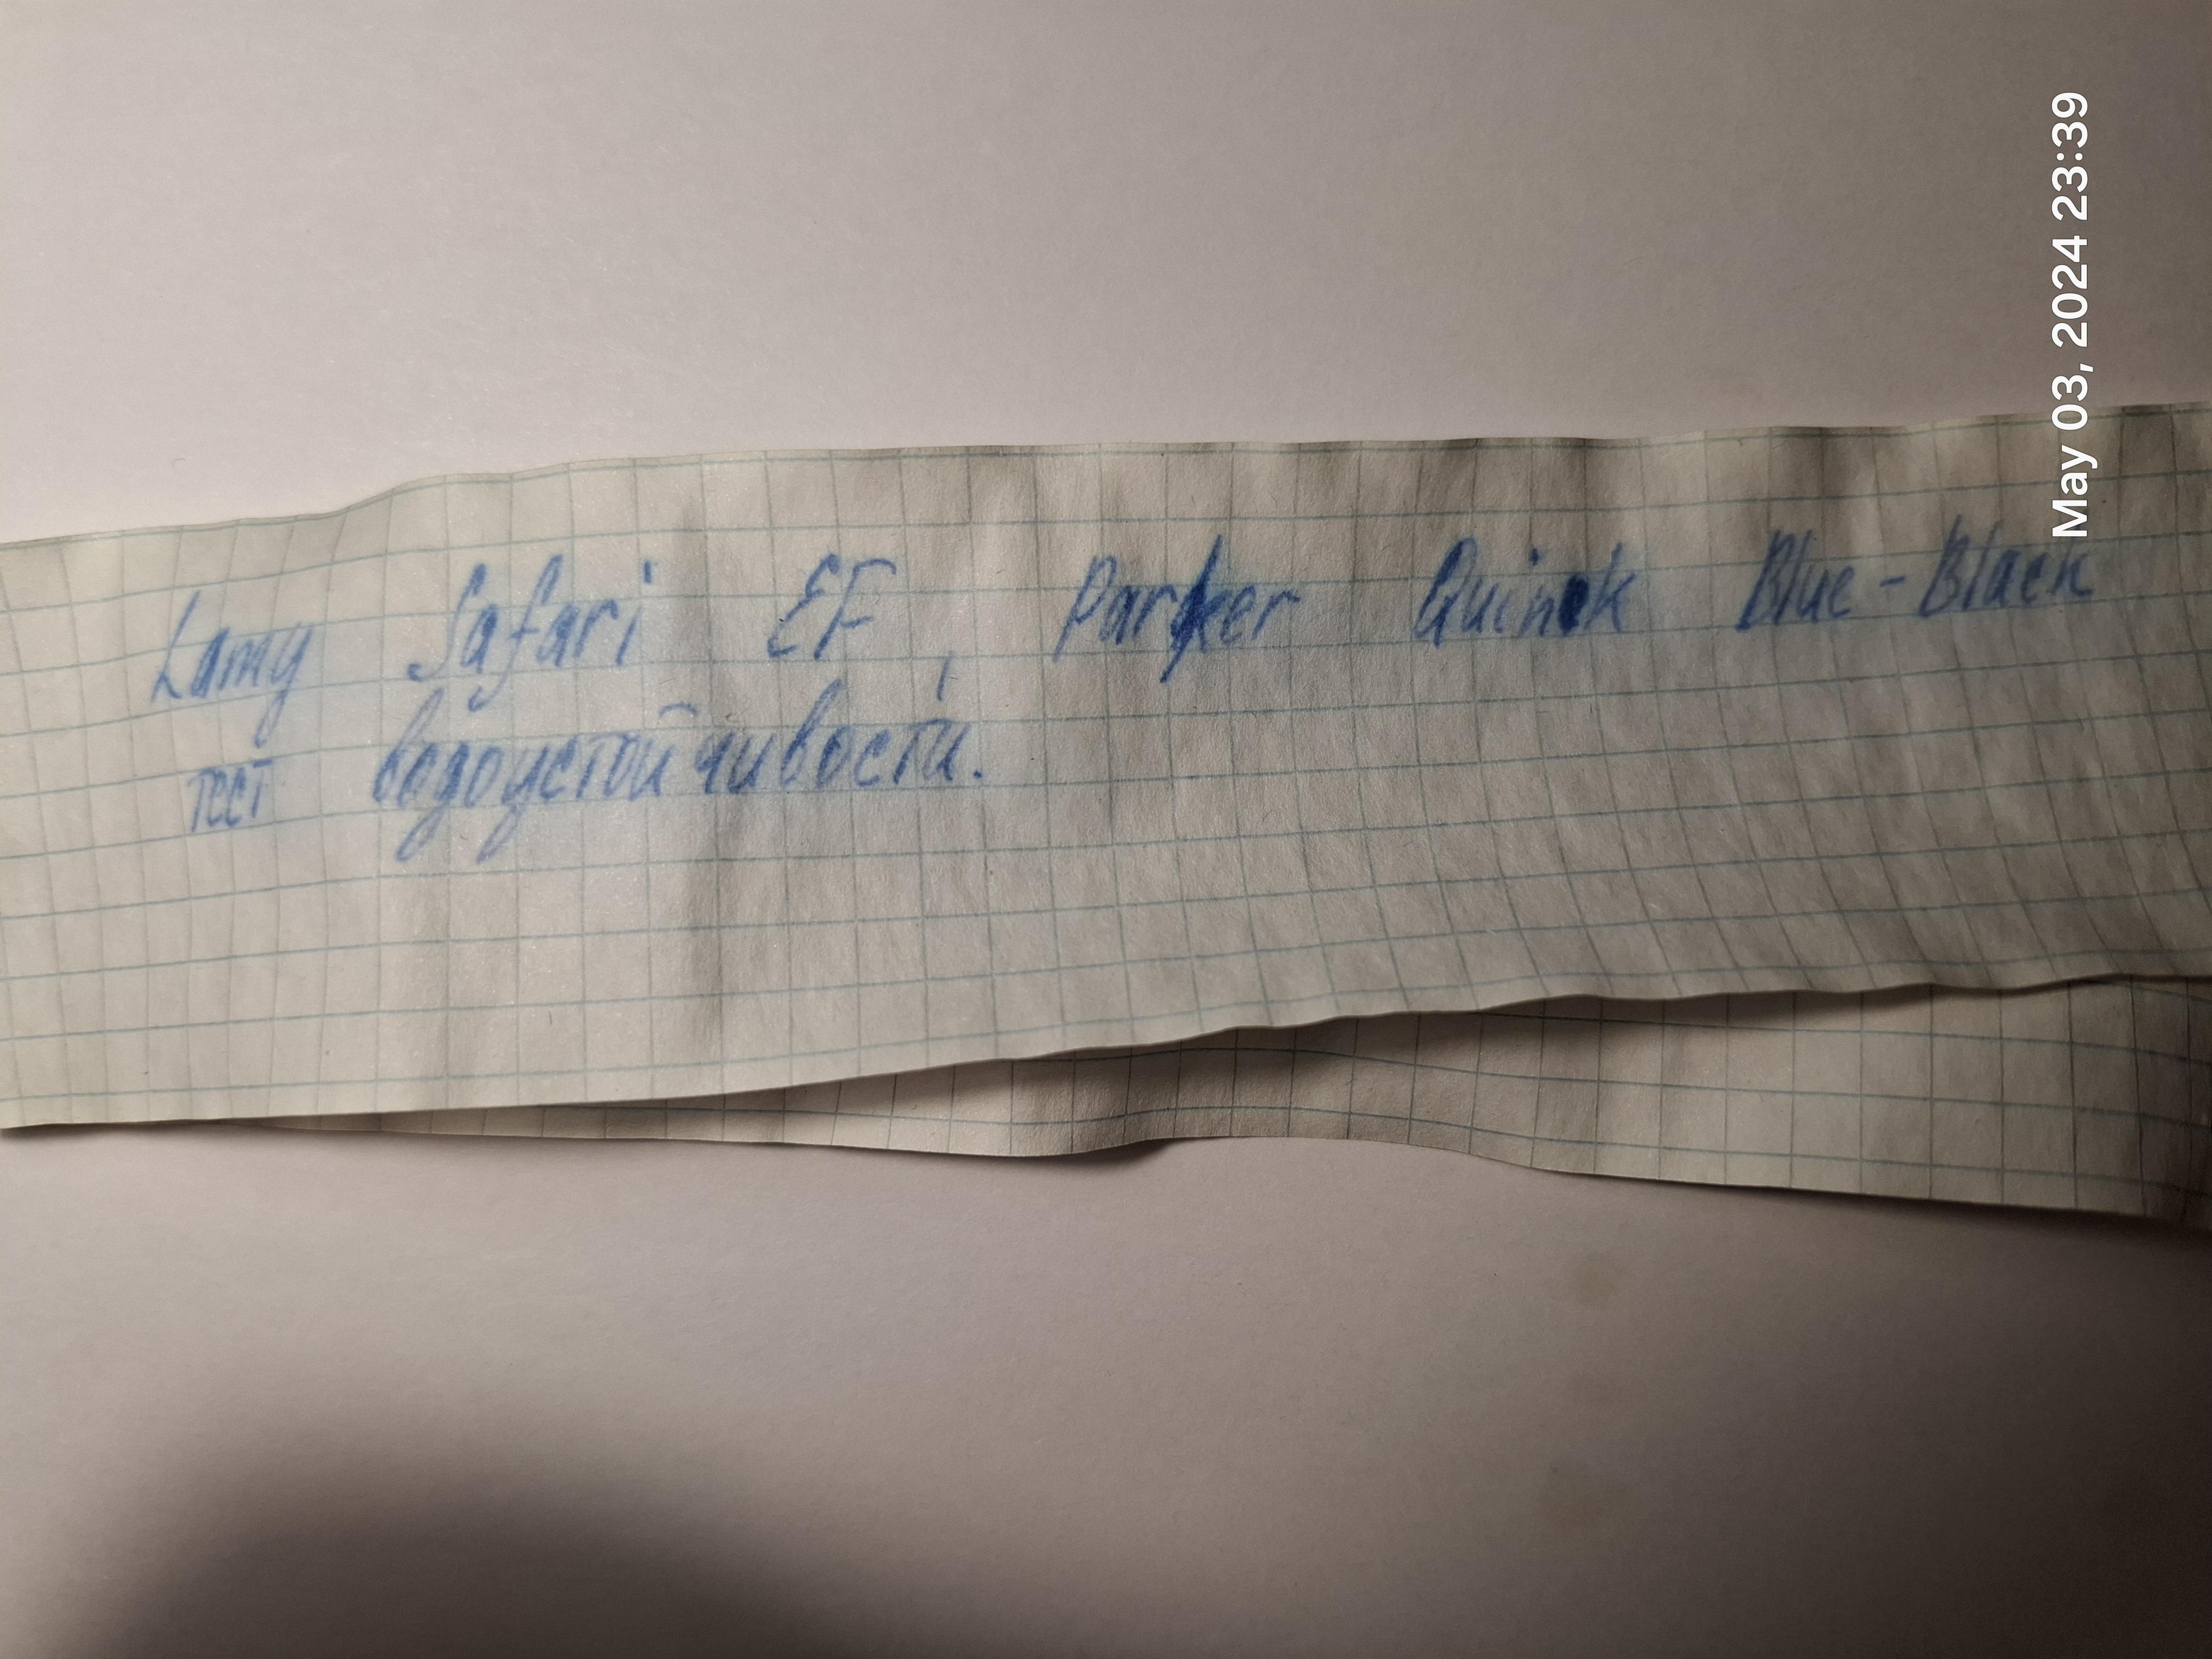 Lamy Safari EF, Parker Quink Blue-Black
тест водоустойчивости.
May 03, 2024 23:39